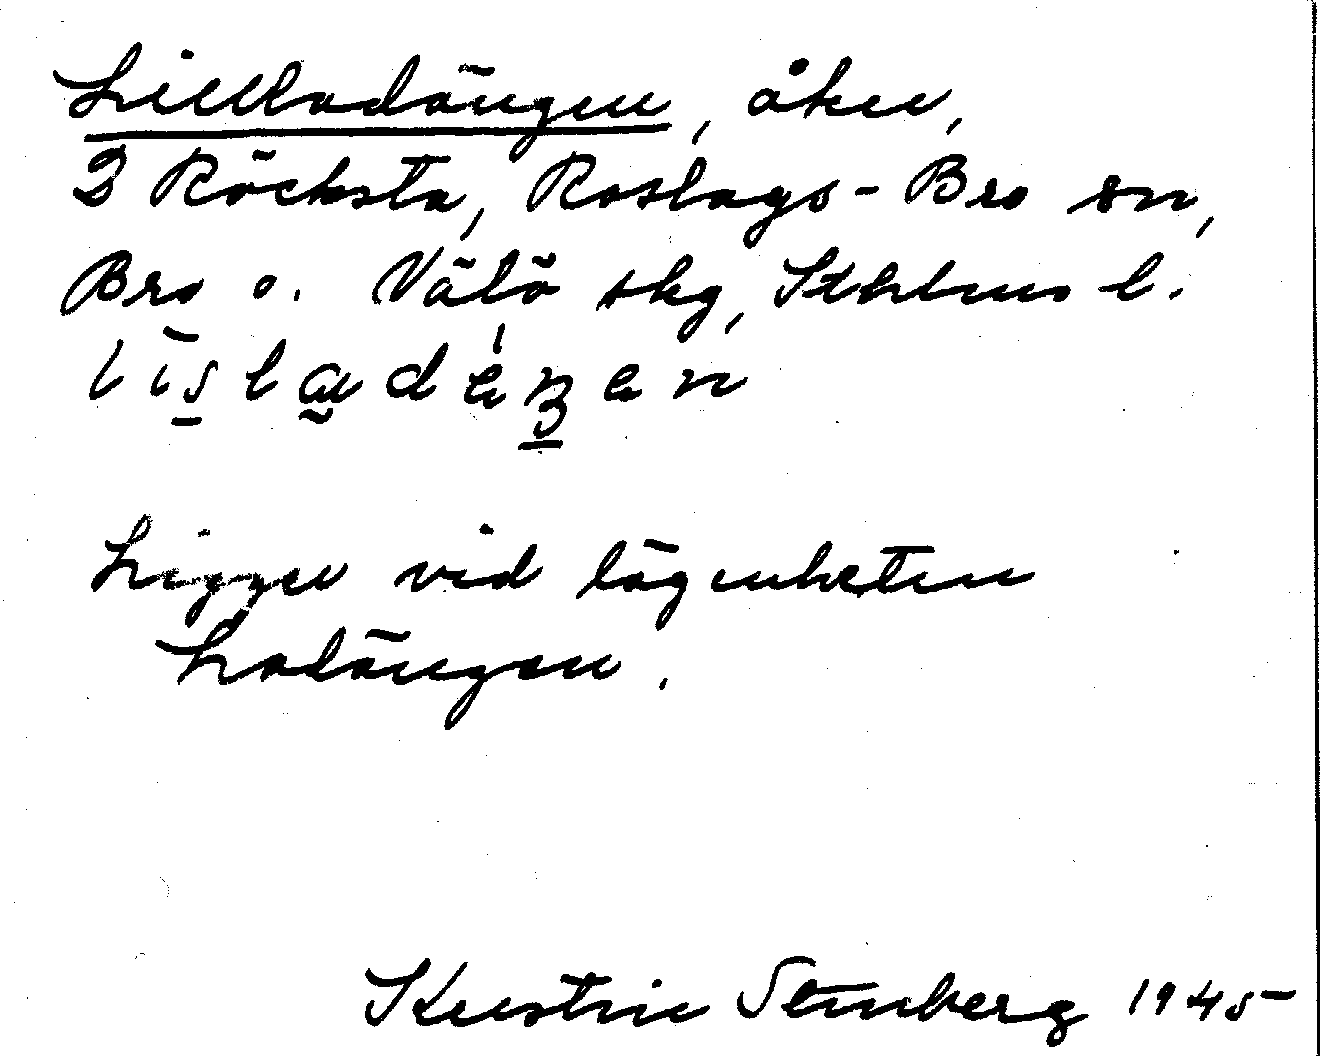 Lillladängen, åker,
2 Röcksta, Roslags-Bro sn,
Bro o. Vätö skg, Sthlms l.
Ligger vid lägenheten
Ladängen.
Kerstin Stenberg 1945